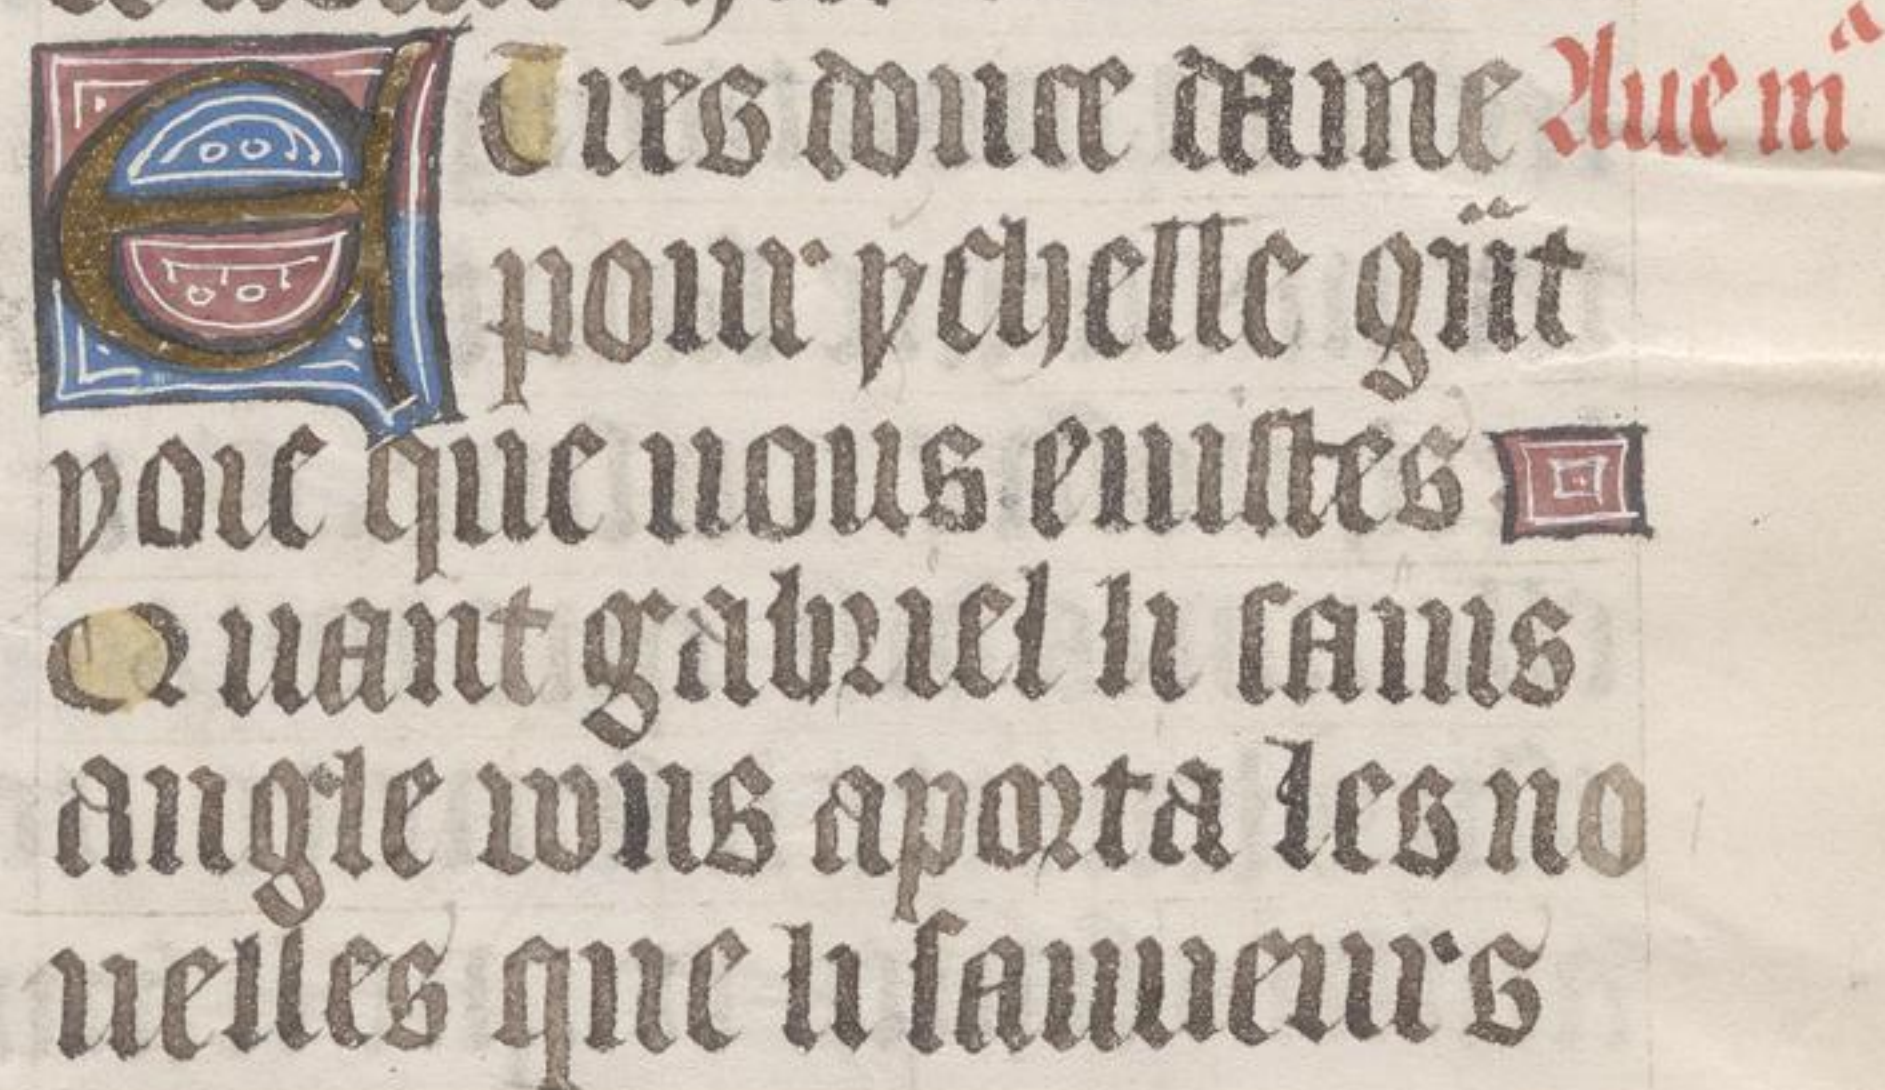 E Tres douce dame Aue mᵃ
pour ychelle gᵃit
yoie que uous euistes
Quant gabriel li sains
angle wus aporta les no
uelles que li sauueurs